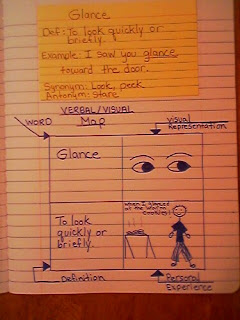 Glance
Def: To look quickly or
briefly.
Example: I saw you glance
toward the door.
Synonym: Look, peek
Antonym: Stare
VERBAL/VISUAL
Map
WORD
Visual
Representation
Glance
When I glanced
at the
cookies!
To look
quickly or
briefly.
Definition
Personal
Experience